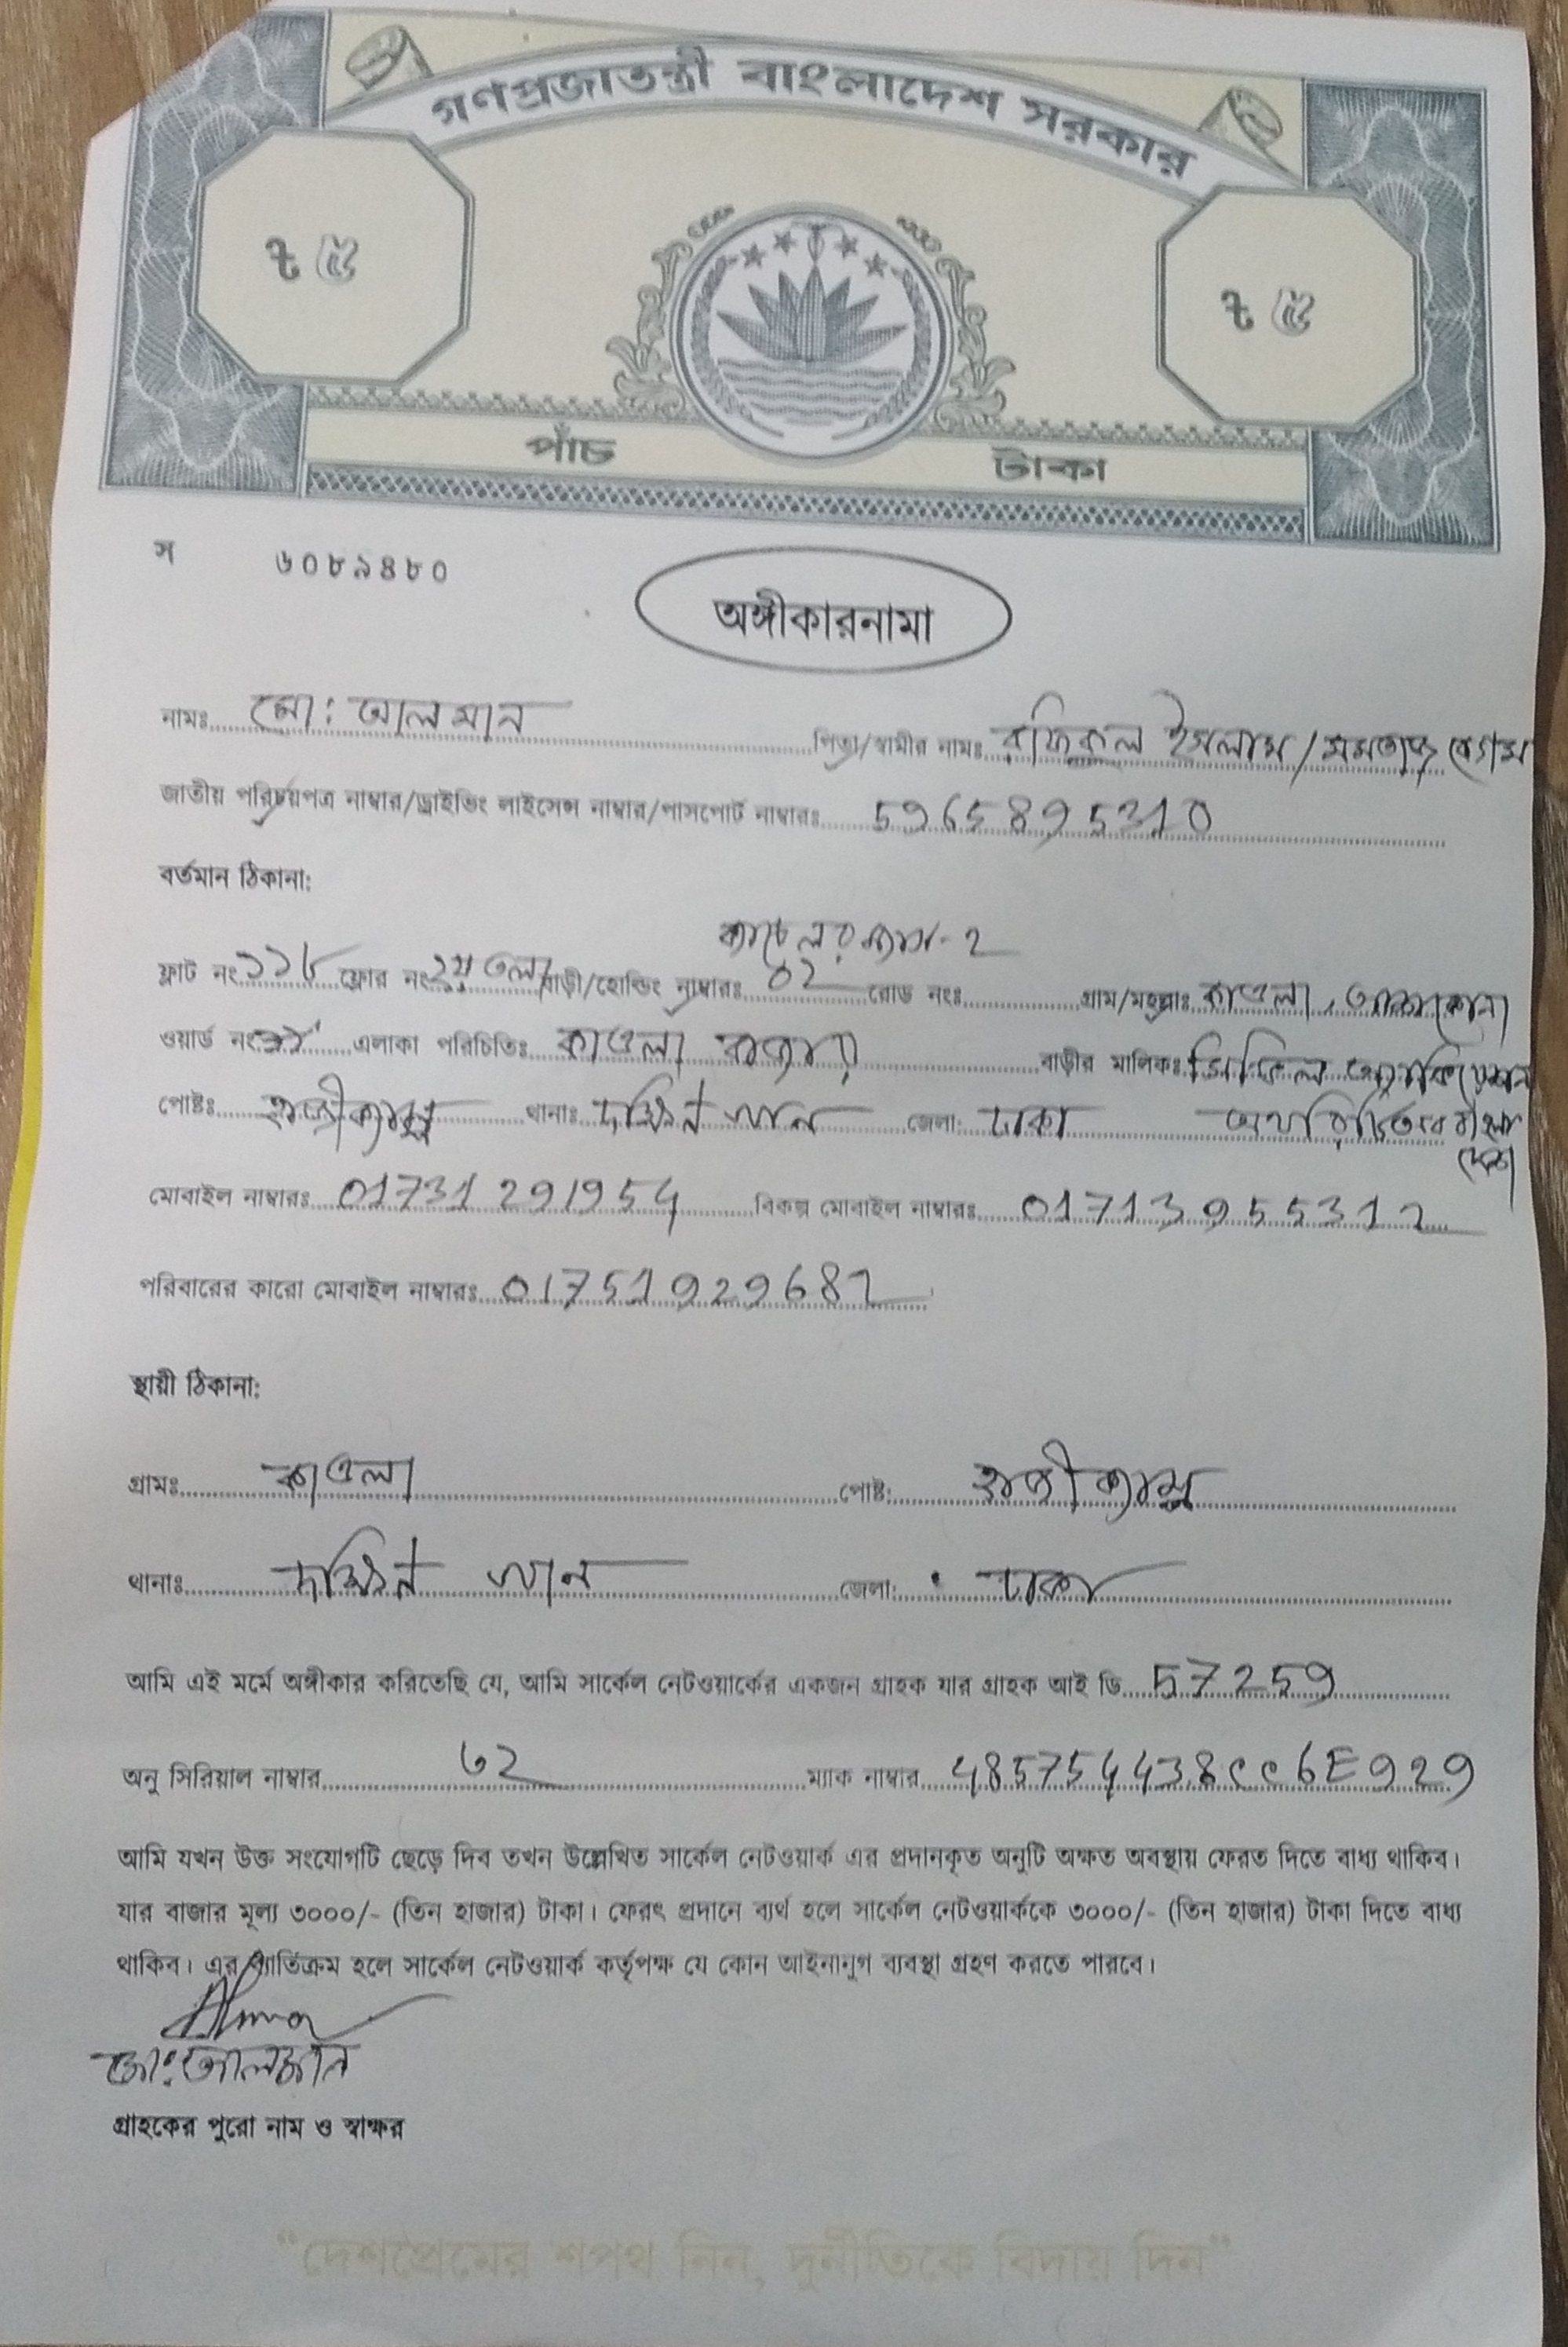 গণপ্রজাতন্ত্রী বাংলাদেশ সরকার
৳ ৫
৳ ৫
পাঁচ টাকা
স ৬০৮৯৪৮০
অঙ্গীকারনামা
নামঃ মো: আলমান পিতা/স্বামীর নামঃ রফিকুল ইসলাম/মমতাজ বেগম
জাতীয় পরিচয়পত্র নাম্বার/ড্রাইভিং লাইসেন্স নাম্বার/পাসপোর্ট নাম্বারঃ 5965895310
বর্তমান ঠিকানা:
ফ্লাট নং ১১৮ ফ্লোর নং ২য় তলা বাড়ী/হোল্ডিং নাম্বারঃ 02 রোড নংঃ গ্রাম/মহল্লাঃ কাওলা,
ওয়ার্ড নং এলাকা পরিচিতিঃ কাওলা বাজার বাড়ীর মালিকঃ সিভিল
পোষ্টঃ হাজী ক্যাম্প থানাঃ দক্ষিন খান জেলা: ঢাকা
মোবাইল নাম্বারঃ 01731291954 বিকল্প মোবাইল নাম্বারঃ 01713955312
পরিবারের কারো মোবাইল নাম্বারঃ 01751929682
স্থায়ী ঠিকানা:
গ্রামঃ কাওলা পোষ্ট: হাজী ক্যাম্প
থানাঃ দক্ষিন খান জেলা: ঢাকা
আমি এই মর্মে অঙ্গীকার করিতেছি যে, আমি সার্কেল নেটওয়ার্কের একজন গ্রাহক যার গ্রাহক আই ডি 57259
অনু সিরিয়াল নাম্বার ৩২ ম্যাক নাম্বার 485754438CC6E929
আমি যখন উক্ত সংযোগটি ছেড়ে দিব তখন উল্লেখিত সার্কেল নেটওয়ার্ক এর প্রদানকৃত অনুটি অক্ষত অবস্থায় ফেরত দিতে বাধ্য থাকিব।
যার বাজার মূল্য ৩০০০/- (তিন হাজার) টাকা। ফেরৎ প্রদানে ব্যর্থ হলে সার্কেল নেটওয়ার্ককে ৩০০০/- (তিন হাজার) টাকা দিতে বাধ্য
থাকিব। এর ব্যতিক্রম হলে সার্কেল নেটওয়ার্ক কর্তৃপক্ষ যে কোন আইনানুগ ব্যবস্থা গ্রহণ করতে পারবে।
মো: আলমান
গ্রাহকের পুরো নাম ও স্বাক্ষর
“দেশপ্রেমের শপথ নিন, দুর্নীতিকে বিদায় দিন”